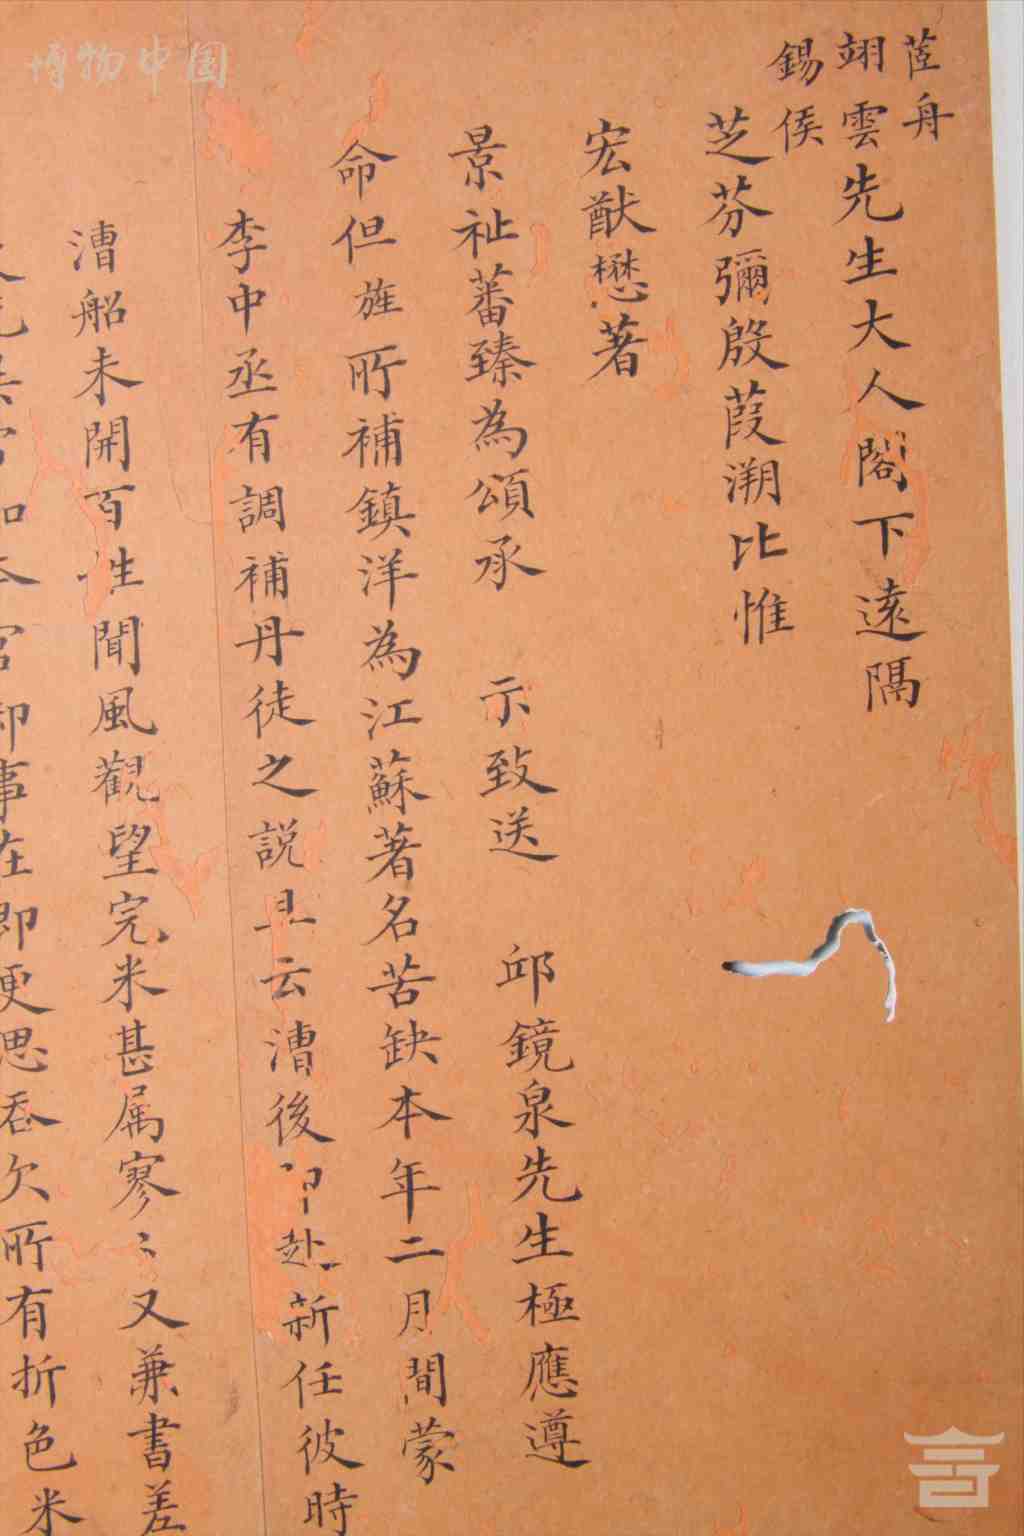 茝舟
翊雲先生大人閣下遠隔
錫侯
芝芬彌殷葭溯比惟
宏猷懋著
景祉蕃臻為頌承 示致送 邱鏡泉先生極應遵
命但旌所補鎮洋為江蘇著名苦缺本年二月間蒙
李中丞有調補丹徒之說且云漕後即赴新任彼時
漕船未開百姓聞風觀望完米甚属寥〻又兼書差
官卸事在即更思吞欠所有折色米
博物中国